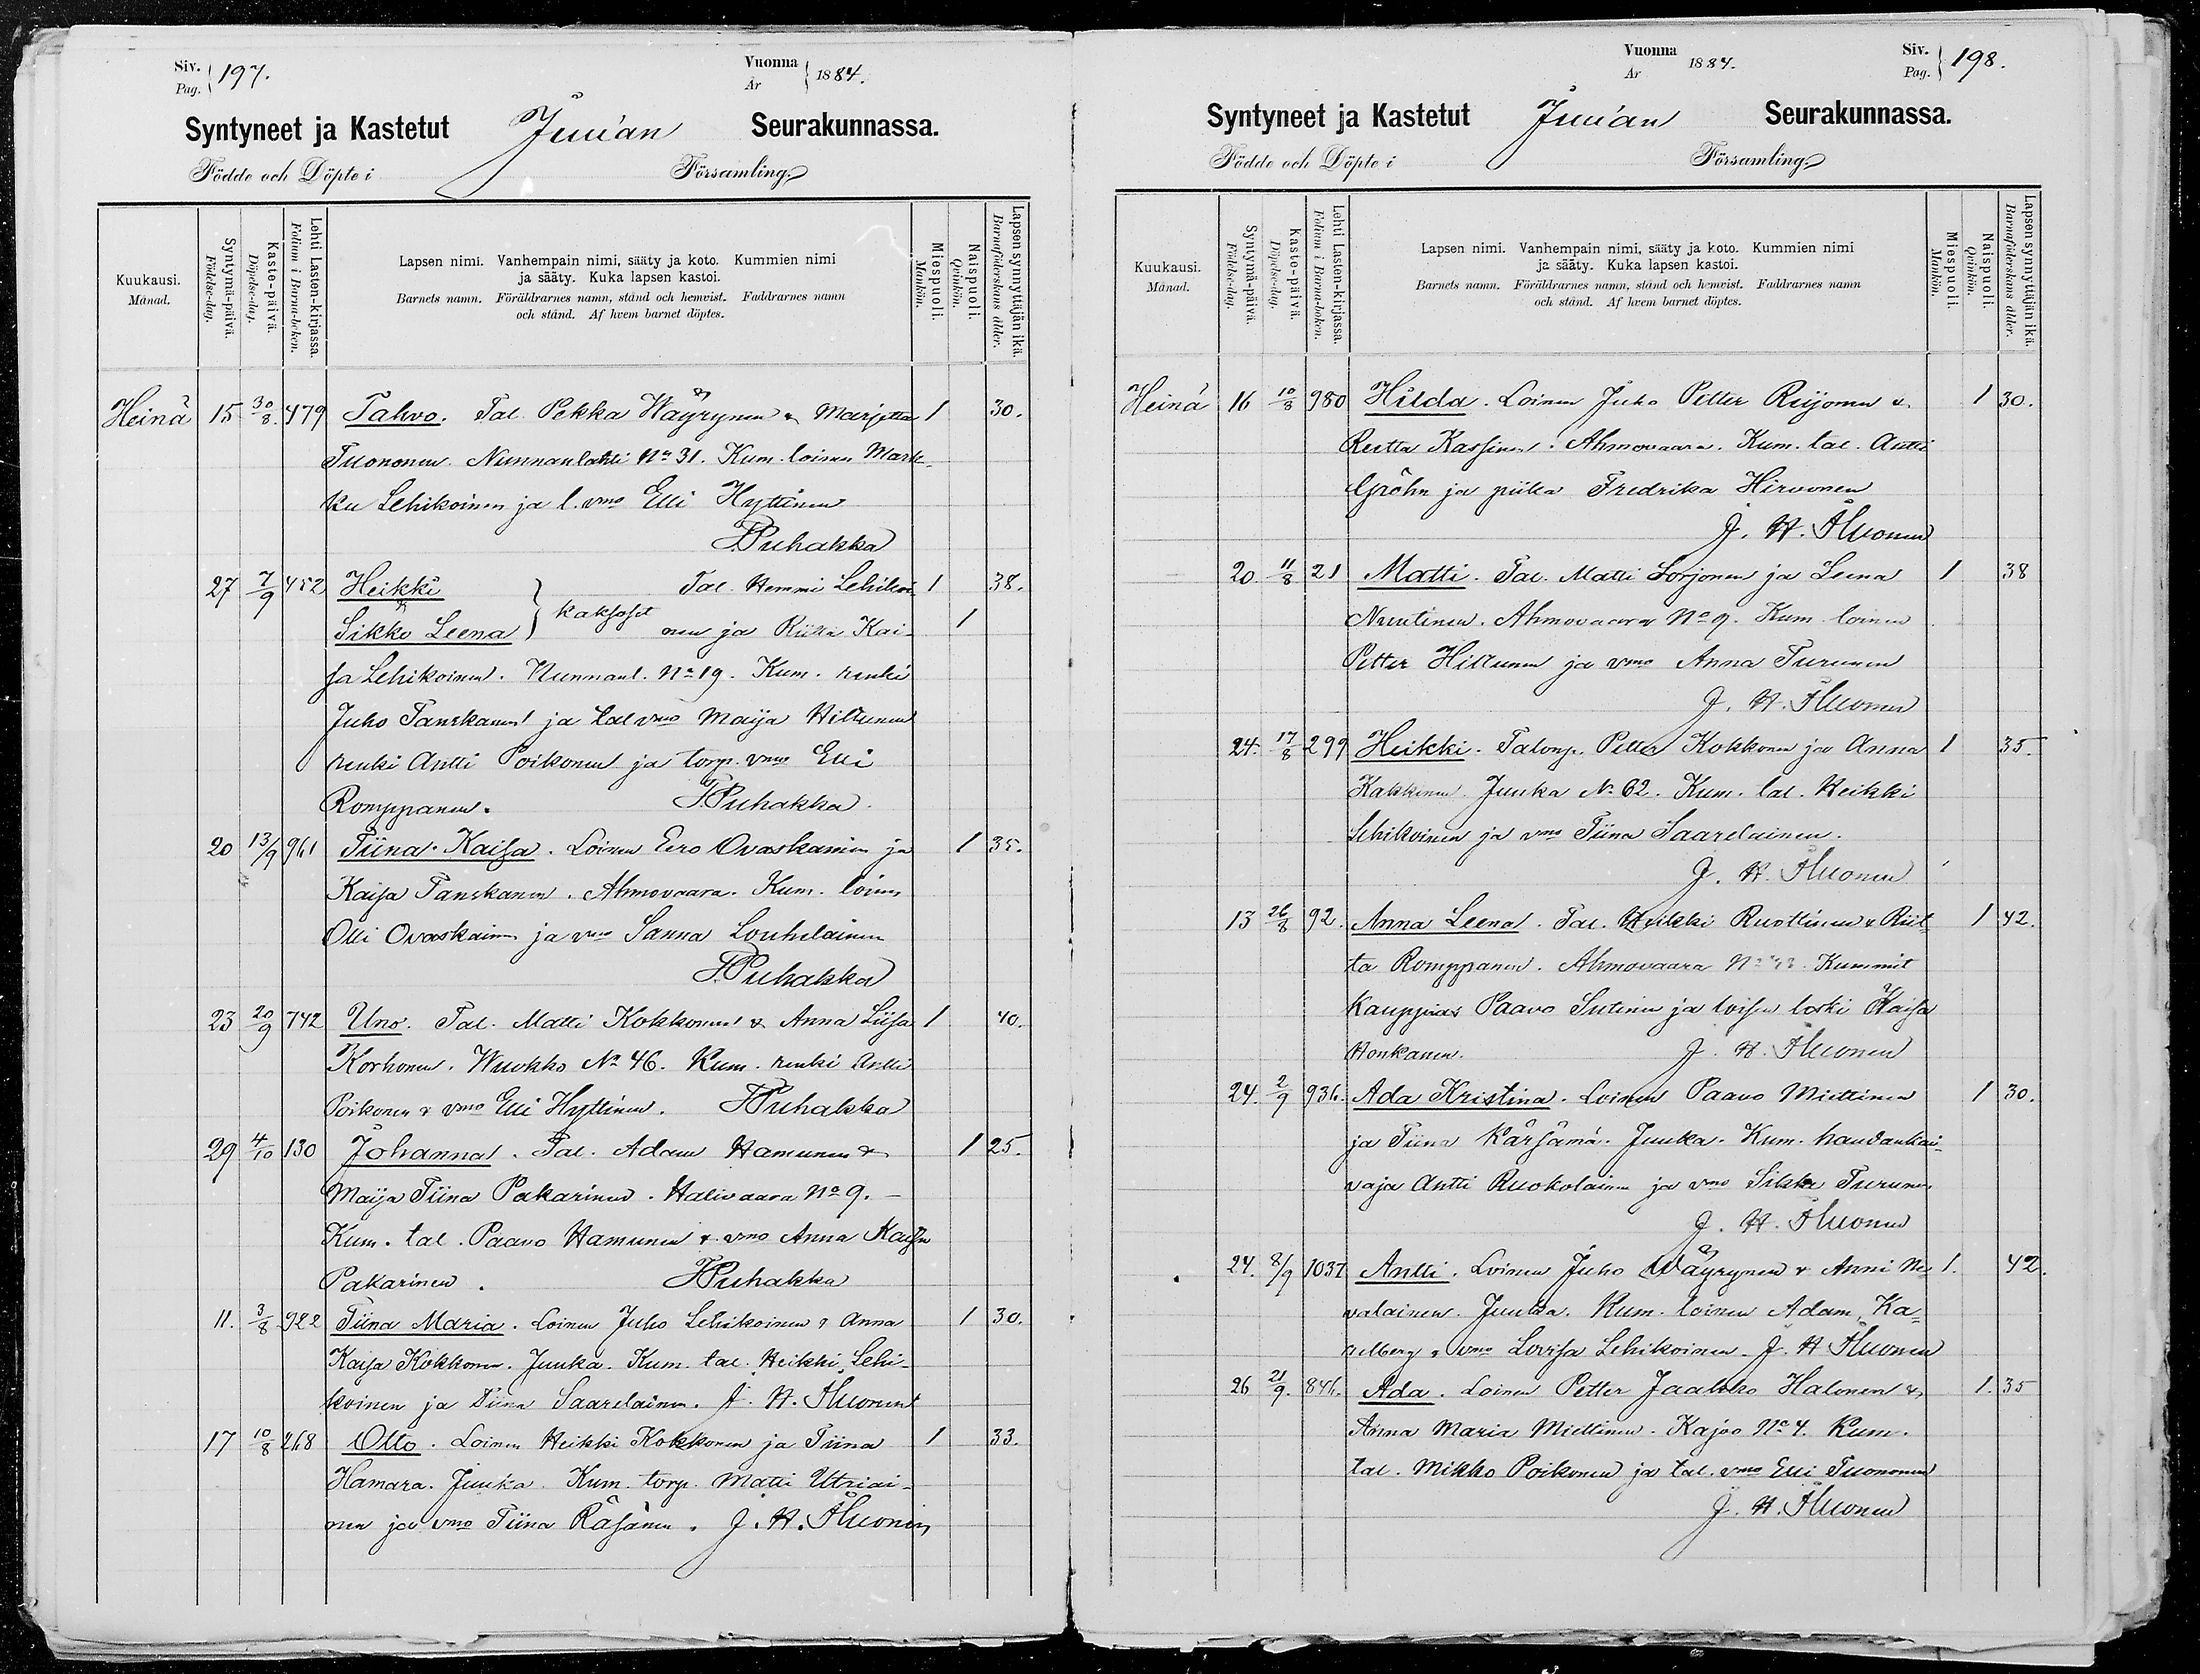 Siv. Pag. 197.
Vuonna År 1884.
Syntyneet ja Kastetut Juuan Seurakunnassa.
Födde och Döpte i Församling.
Kuukausi. Månad.
Syntymä-päivä. Födelse-dag.
Kasto-päivä. Döpelse-dag.
Lehti Lasten-kirjassa. Folium i Barna-boken.
Lapsen nimi. Vanhempain nimi, sääty ja koto. Kummien nimi
ja sääty. Kuka lapsen kastoi.
Barnets namn. Föräldrarnes namn, stånd och hemvist. Faddrarnes namn
och stånd. Af hvem barnet döptes.
Miespuoli. Mankön.
Naispuoli. Qvinkön.
Lapsen synnyttäjän ikä. Barnaföderskans ålder.
Heinä 15 30/8. 479 Tahvo. Tal. Pekka Wäyrynen & Marjetta 1 30.
Tuononen. Nunnanlahti No 31. Kum. loinen Mark-
ku Lehikoinen ja l. vmo Elli Hyttinen
J.Puhakka
27 7/9 452 Heikki } kaksoset Tal. Hemmi Lehikoi- 1 38.
Sikko Leena nen ja Riikka Kai- 1
sa Lehikoinen. Nunnanl. No 19. Kum. renki
Juho Tanskanen ja tal vmo Maija Hiltunen
renki Antti Poikonen ja torp. vmo Elli
Romppanen. J.Puhakka.
20 13/9 961 Tiina Kaisa. Loinen Eero Ovaskainen ja 1 35.
Kaisa Tanskanen. Ahmovaara. Kum. loinen
Olli Ovaskainen ja vmo Sanna Louhelainen
J.Puhakka
23 20/9 742 Uno. Tal. Matti Kokkonen & Anna Liisa 1 40.
Korhonen. Wuokko No 46. Kum. renki Antti
Poikonen & vmo Elli Hyttinen. J.Puhakka
29 4/10 130 Johanna. Tal. Adam Hamunen & 1 25.
Maija Tiina Pakarinen. Halivaara No 9. -
Kum. tal. Paavo Hamunen & vmo Anna Kaisa
Pakarinen. J.Puhakka
11. 3/8 982 Tiina Maria. Loinen Juho Lehikoinen & Anna 1 30.
Kaisa Kokkonen. Juuka. Kum. tal. Heikki Lehi-
koinen ja Tiina Saarelainen. J. H. Åhuonen
17 10/8 268 Otto. Loinen Heikki Kokkonen ja Tiina 1 33.
Hamara. Juuka. Kum. torp. Matti Utriai-
nen ja vmo Tiina Räsänen. J. H. Åhuonen
Siv. Pag. 198.
Vuonna År 1884.
Syntyneet ja Kastetut Juuan Seurakunnassa.
Födde och Döpte i Församling.
Kuukausi. Månad.
Syntymä-päivä. Födelse-dag.
Kasto-päivä. Döpelse-dag.
Lehti Lasten-kirjassa. Folium i Barna-boken.
Lapsen nimi. Vanhempain nimi, sääty ja koto. Kummien nimi
ja sääty. Kuka lapsen kastoi.
Barnets namn. Föräldrarnes namn, stånd och hemvist. Faddrarnes namn
och stånd. Af hvem barnet döptes.
Miespuoli. Mankön.
Naispuoli. Qvinkön.
Lapsen synnyttäjän ikä. Barnaföderskans ålder.
Heinä 16 10/8 980 Hilda. Loinen Juho Petter Reijonen & 1 30.
Reetta Kassinen. Ahmovaara. Kum. tal. Antti
Gröhn ja piika Fredrika Hirvonen
J. H. Åhuonen
20 11/8 21 Matti. Tal. Matti Sorjonen ja Leena 1 38
Nuutinen. Ahmovaara No 9. Kum. loinen
Petter Hiltunen ja vmo Anna Turunen
J. H. Åhuonen
24. 17/8 299 Heikki. Talonp. Petter Kokkonen ja Anna 1 35.
Kakkinen Juuka No 62. Kum. tal. Heikki
Lehikoinen ja vmo Tiina Saarelainen.
J. H. Åhuonen
13 26/8 92. Anna Leena. Tal. Heikki Ruottinen & Riit- 1 42.
ta Romppanen. Ahmovaara Kummit
Kauppias Paavo Sutinen ja loisen leski Kaisa
Honkanen. J. H. Åhuonen
24. 2/9 936. Ada Kristina. Loinen Paavo Miettinen 1 30.
ja Tiina Kärsämä. Juuka. Kum. haudankai-
vaja Antti Ruokolainen ja vmo Sikko Turunen.
J. H. Åhuonen
24. 8/9 1037 Antti. Loinen Juho Wäyrynen & Anni Ne- 1. 42.
valainen. Juuka. Kum. loinen Adam Ka-
nelberg & vmo Lovisa Lehikoinen. J. H Åhuonen
26 21/9. 846. Ada. Loinen Petter Jaakko Halonen & 1. 35
Anna Maria Miettinen. Kajoo No 4. Kum.
tal. Mikko Poikonen ja tal. vmo Elli Tuononen
J. H. Åhuonen